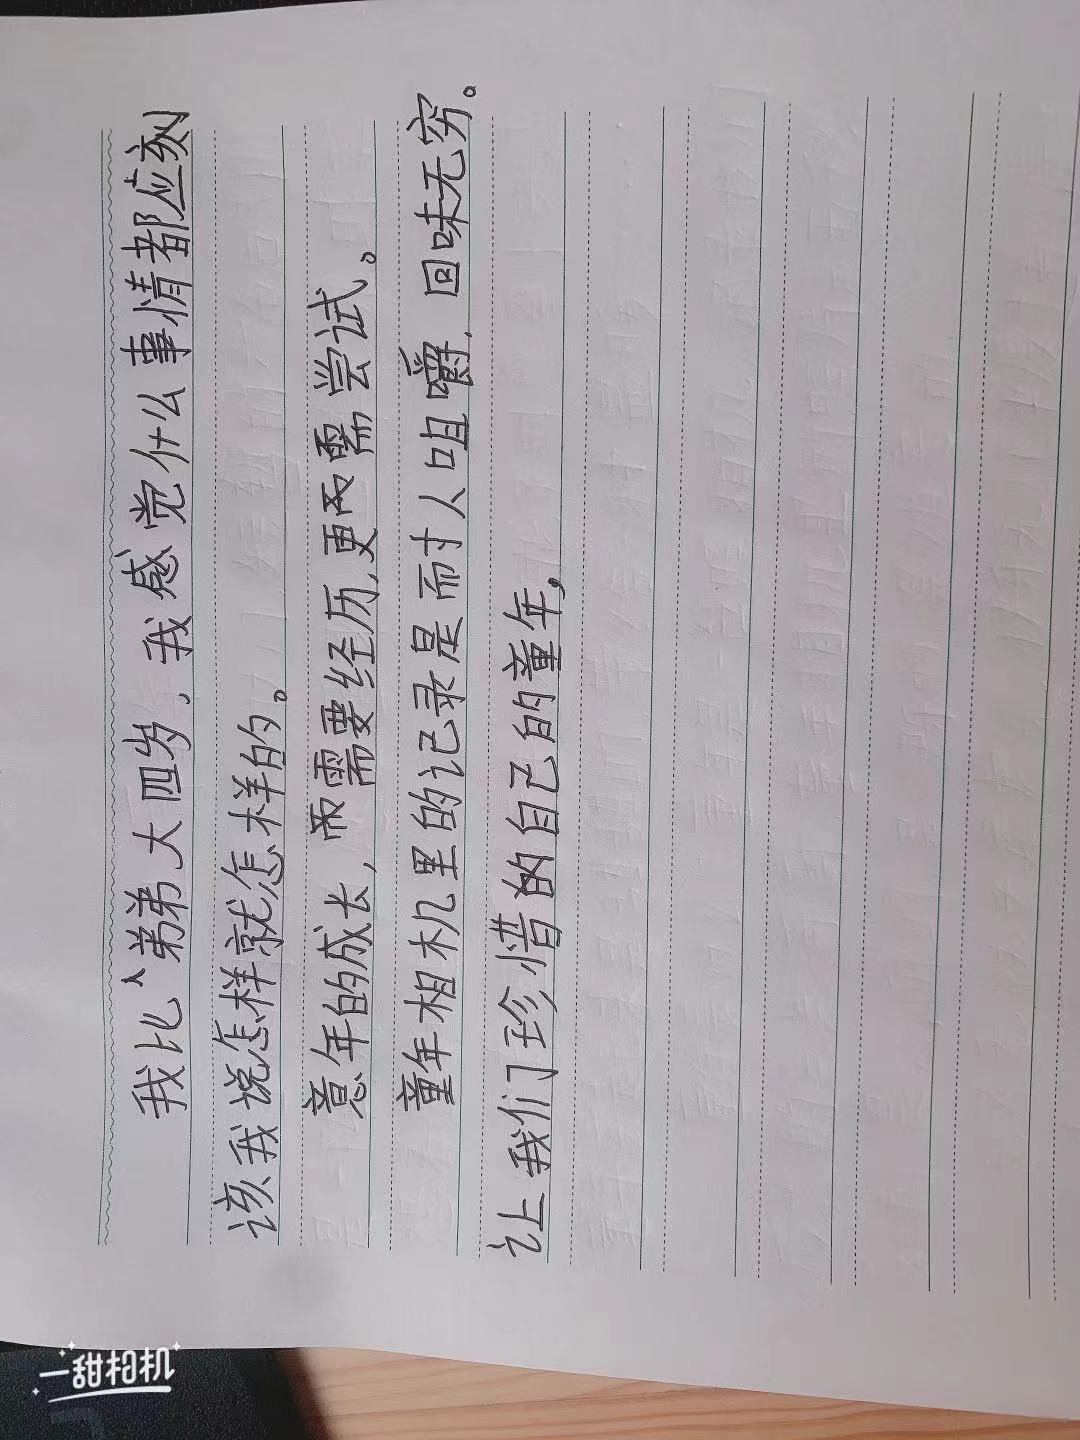 我比弟弟大四岁，我感觉什么事情都应刻
该我说怎样就怎样的。
意年的成长，而需要经历，更需尝试。
童年相机里的记录是耐人咀嚼，回味无穷。
让我们珍惜的自己的童年，
一甜相机